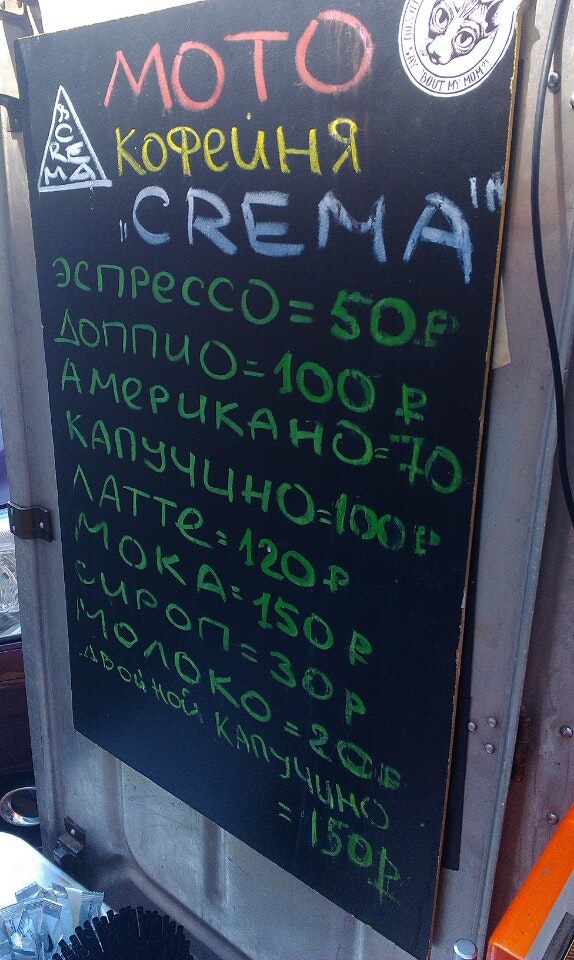 МОТО
КОФЕЙНЯ
"CREMA"
CREMA
'BOUT MY MOM?!
ЭСПРЕССО = 50₽
ДОППИО = 100 ₽
АМЕРИКАНО = 70
КАПУЧИНО = 100₽
ЛАТТЕ = 120₽
МОКА = 150 ₽
СИРОП = 30₽
МОЛОКО = 20₽
ДВОЙНОЙ КАПУЧИНО
= 150₽